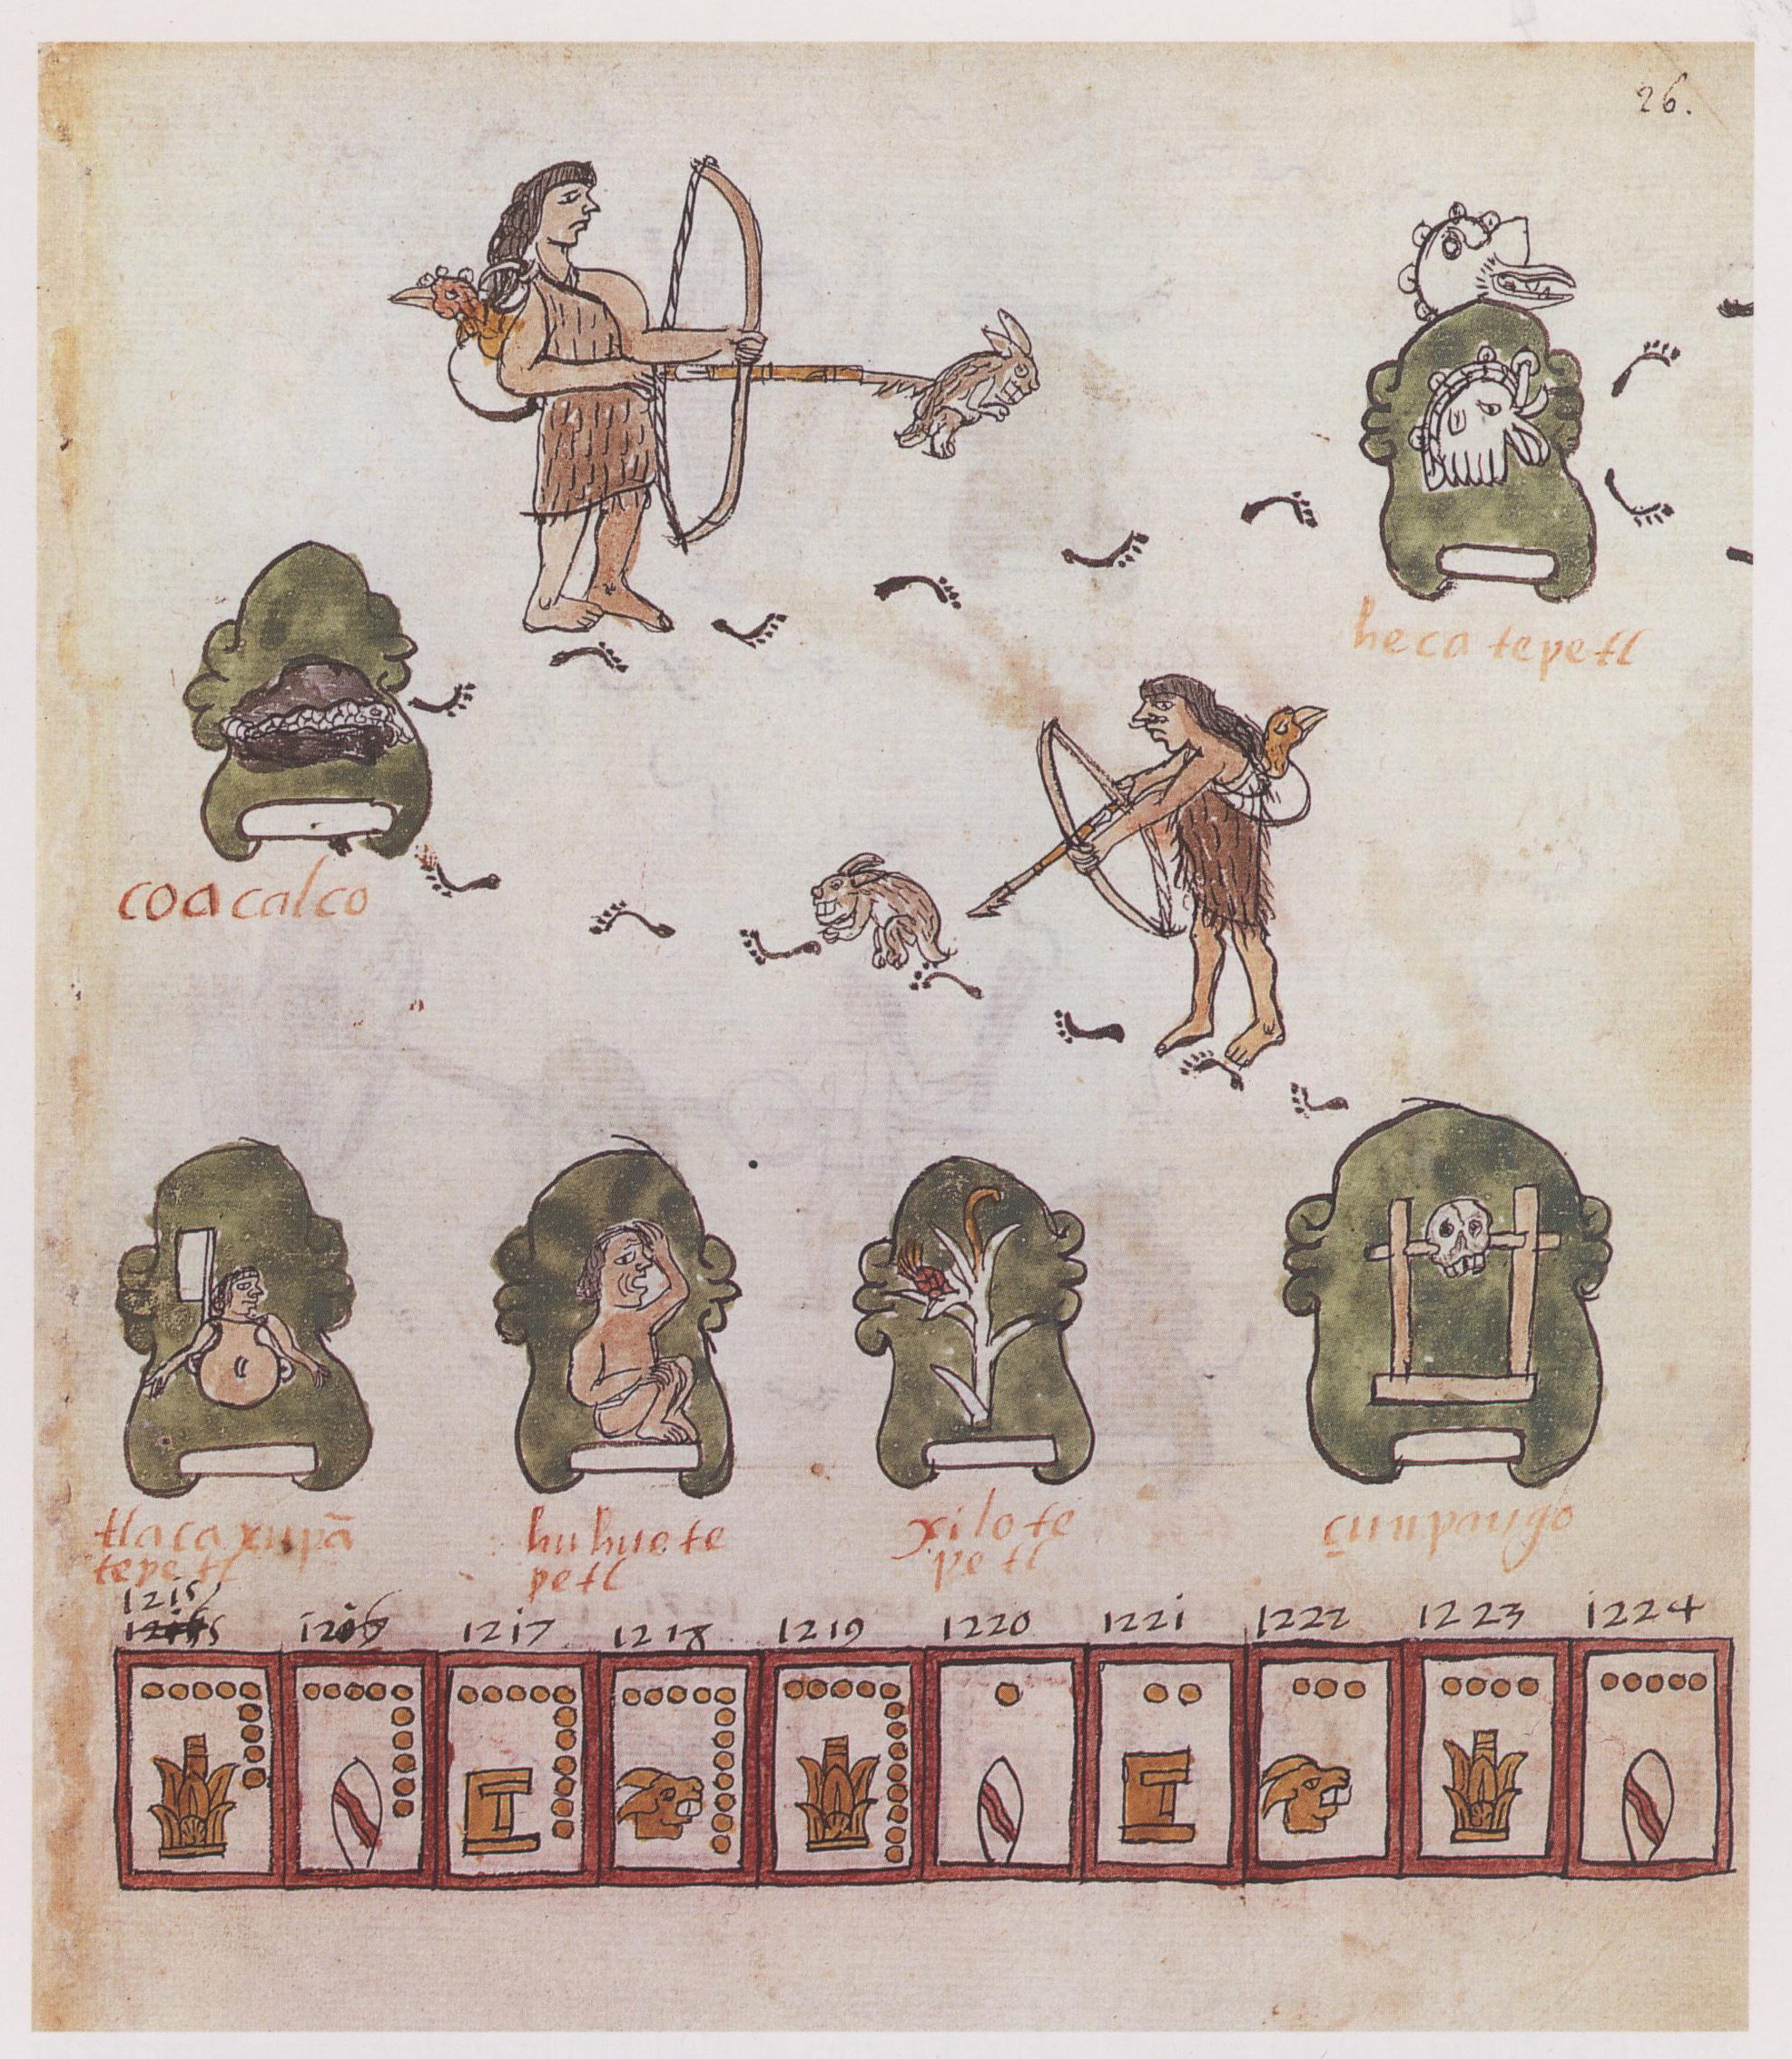 26.
heca tepetl
coa calco
tlaca xupā
tepetl
huhuete
petl
xilote
petl
çunpango
1215
1217
1218
1219
1220
1221
1222
1223
1224